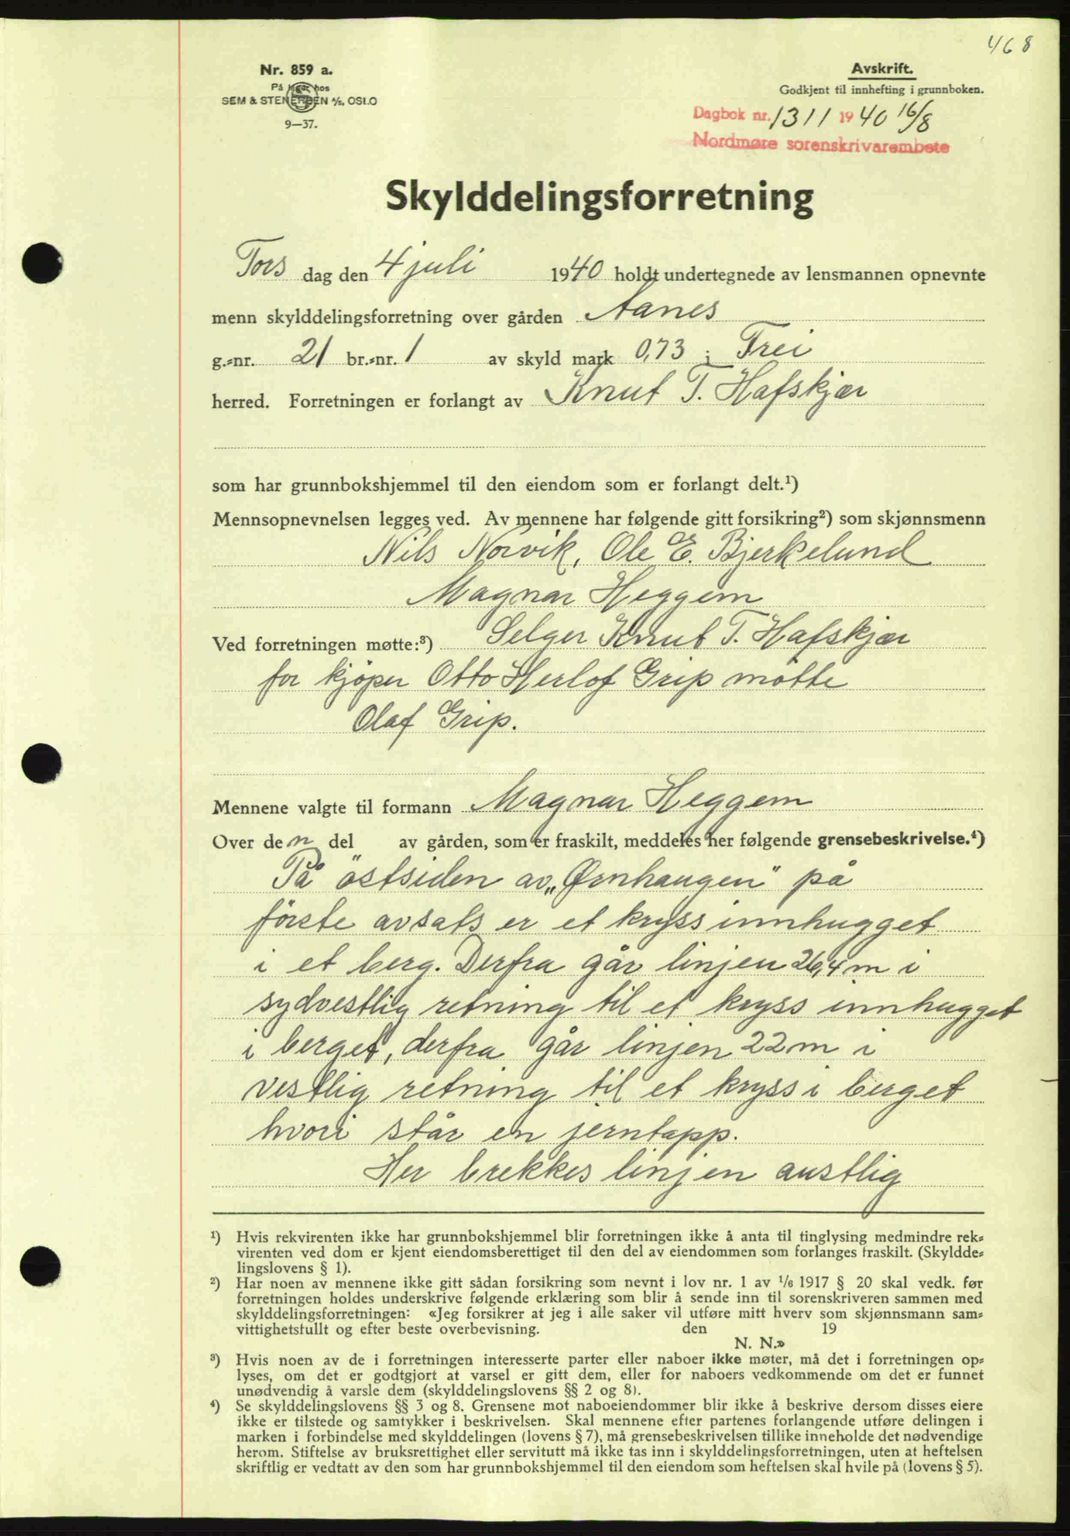 468
Nr. 859 a.
På lager hos
SEM & STENERSEN A/S, OSLO
9—37.
Avskrift.
Godkjent til innhefting i grunnboken.
Dagbok nr. 1311 1940 16/8
Nordmøre sorenskrivarembete
Skylddelingsforretning
Tors dag den 4 juli 1940 holdt undertegnede av lensmannen opnevnte
menn skylddelingsforretning over gården Aanes
g.=nr. 21 br.=nr. 1 av skyld mark 0,73 i Frei
herred. Forretningen er forlangt av Knut T. Hafskjær
som har grunnbokshjemmel til den eiendom som er forlangt delt.¹)
Mennsopnevnelsen legges ved. Av mennene har følgende gitt forsikring²) som skjønnsmenn
Nils Norvik, Ole E. Bjerkelund
og
Magnar Heggem
Ved forretningen møtte:³) Selger Knut T. Hafskjær
for kjöper Otto Herlof Grip mötte
Olaf Grip.
Mennene valgte til formann Magnar Heggem
Over den del av gården, som er fraskilt, meddeles her følgende grensebeskrivelse.⁴)
På östsiden av „Ørnhaugen" på
förste avsats er et kryss innhugget
i et berg. Derfra går linjen 26,4 m i
sydvestlig retning til et kryss innhugget
i berget, derfra går linjen 22 m i
vestlig retning til et kryss i berget
hvori står en jerntapp.
Her brekkes linjen austlig
¹) Hvis rekvirenten ikke har grunnbokshjemmel blir forretningen ikke å anta til tinglysing medmindre rek=
virenten ved dom er kjent eiendomsberettiget til den del av eiendommen som forlanges fraskilt. (Skyldde=
lingslovens § 1).
²) Har noen av mennene ikke gitt sådan forsikring som nevnt i lov nr. 1 av 1/6 1917 § 20 skal vedk. før
forretningen holdes underskrive følgende erklæring som blir å sende inn til sorenskriveren sammen med
skylddelingsforretningen: «Jeg forsikrer at jeg i alle saker vil utføre mitt hverv som skjønnsmann sam=
vittighetsfullt og efter beste overbevisning. den 19
N. N.»
³) Hvis noen av de i forretningen interesserte parter eller naboer ikke møter, må det i forretningen op=
lyses, om det er godtgjort at varsel er gitt dem, eller for naboers vedkommende om det er funnet
unødvendig å varsle dem (skylddelingslovens §§ 2 og 8).
⁴) Se skylddelingslovens §§ 3 og 8. Grensene mot naboeiendommer blir ikke å beskrive dersom disses eiere
ikke er tilstede og samtykker i beskrivelsen. Skal mennene efter partenes forlangende utføre delingen i
marken i forbindelse med skylddelingen (lovens § 7), må grensebeskrivelsen tillike inneholde det nødvendige
herom. Stiftelse av bruksrettighet eller servitutt må ikke tas inn i skylddelingsforretningen, uten at heftelsen
skriftlig er vedtatt av den som har grunnbokshjemmel til den eiendom som heftelsen skal hvile på (lovens § 5).